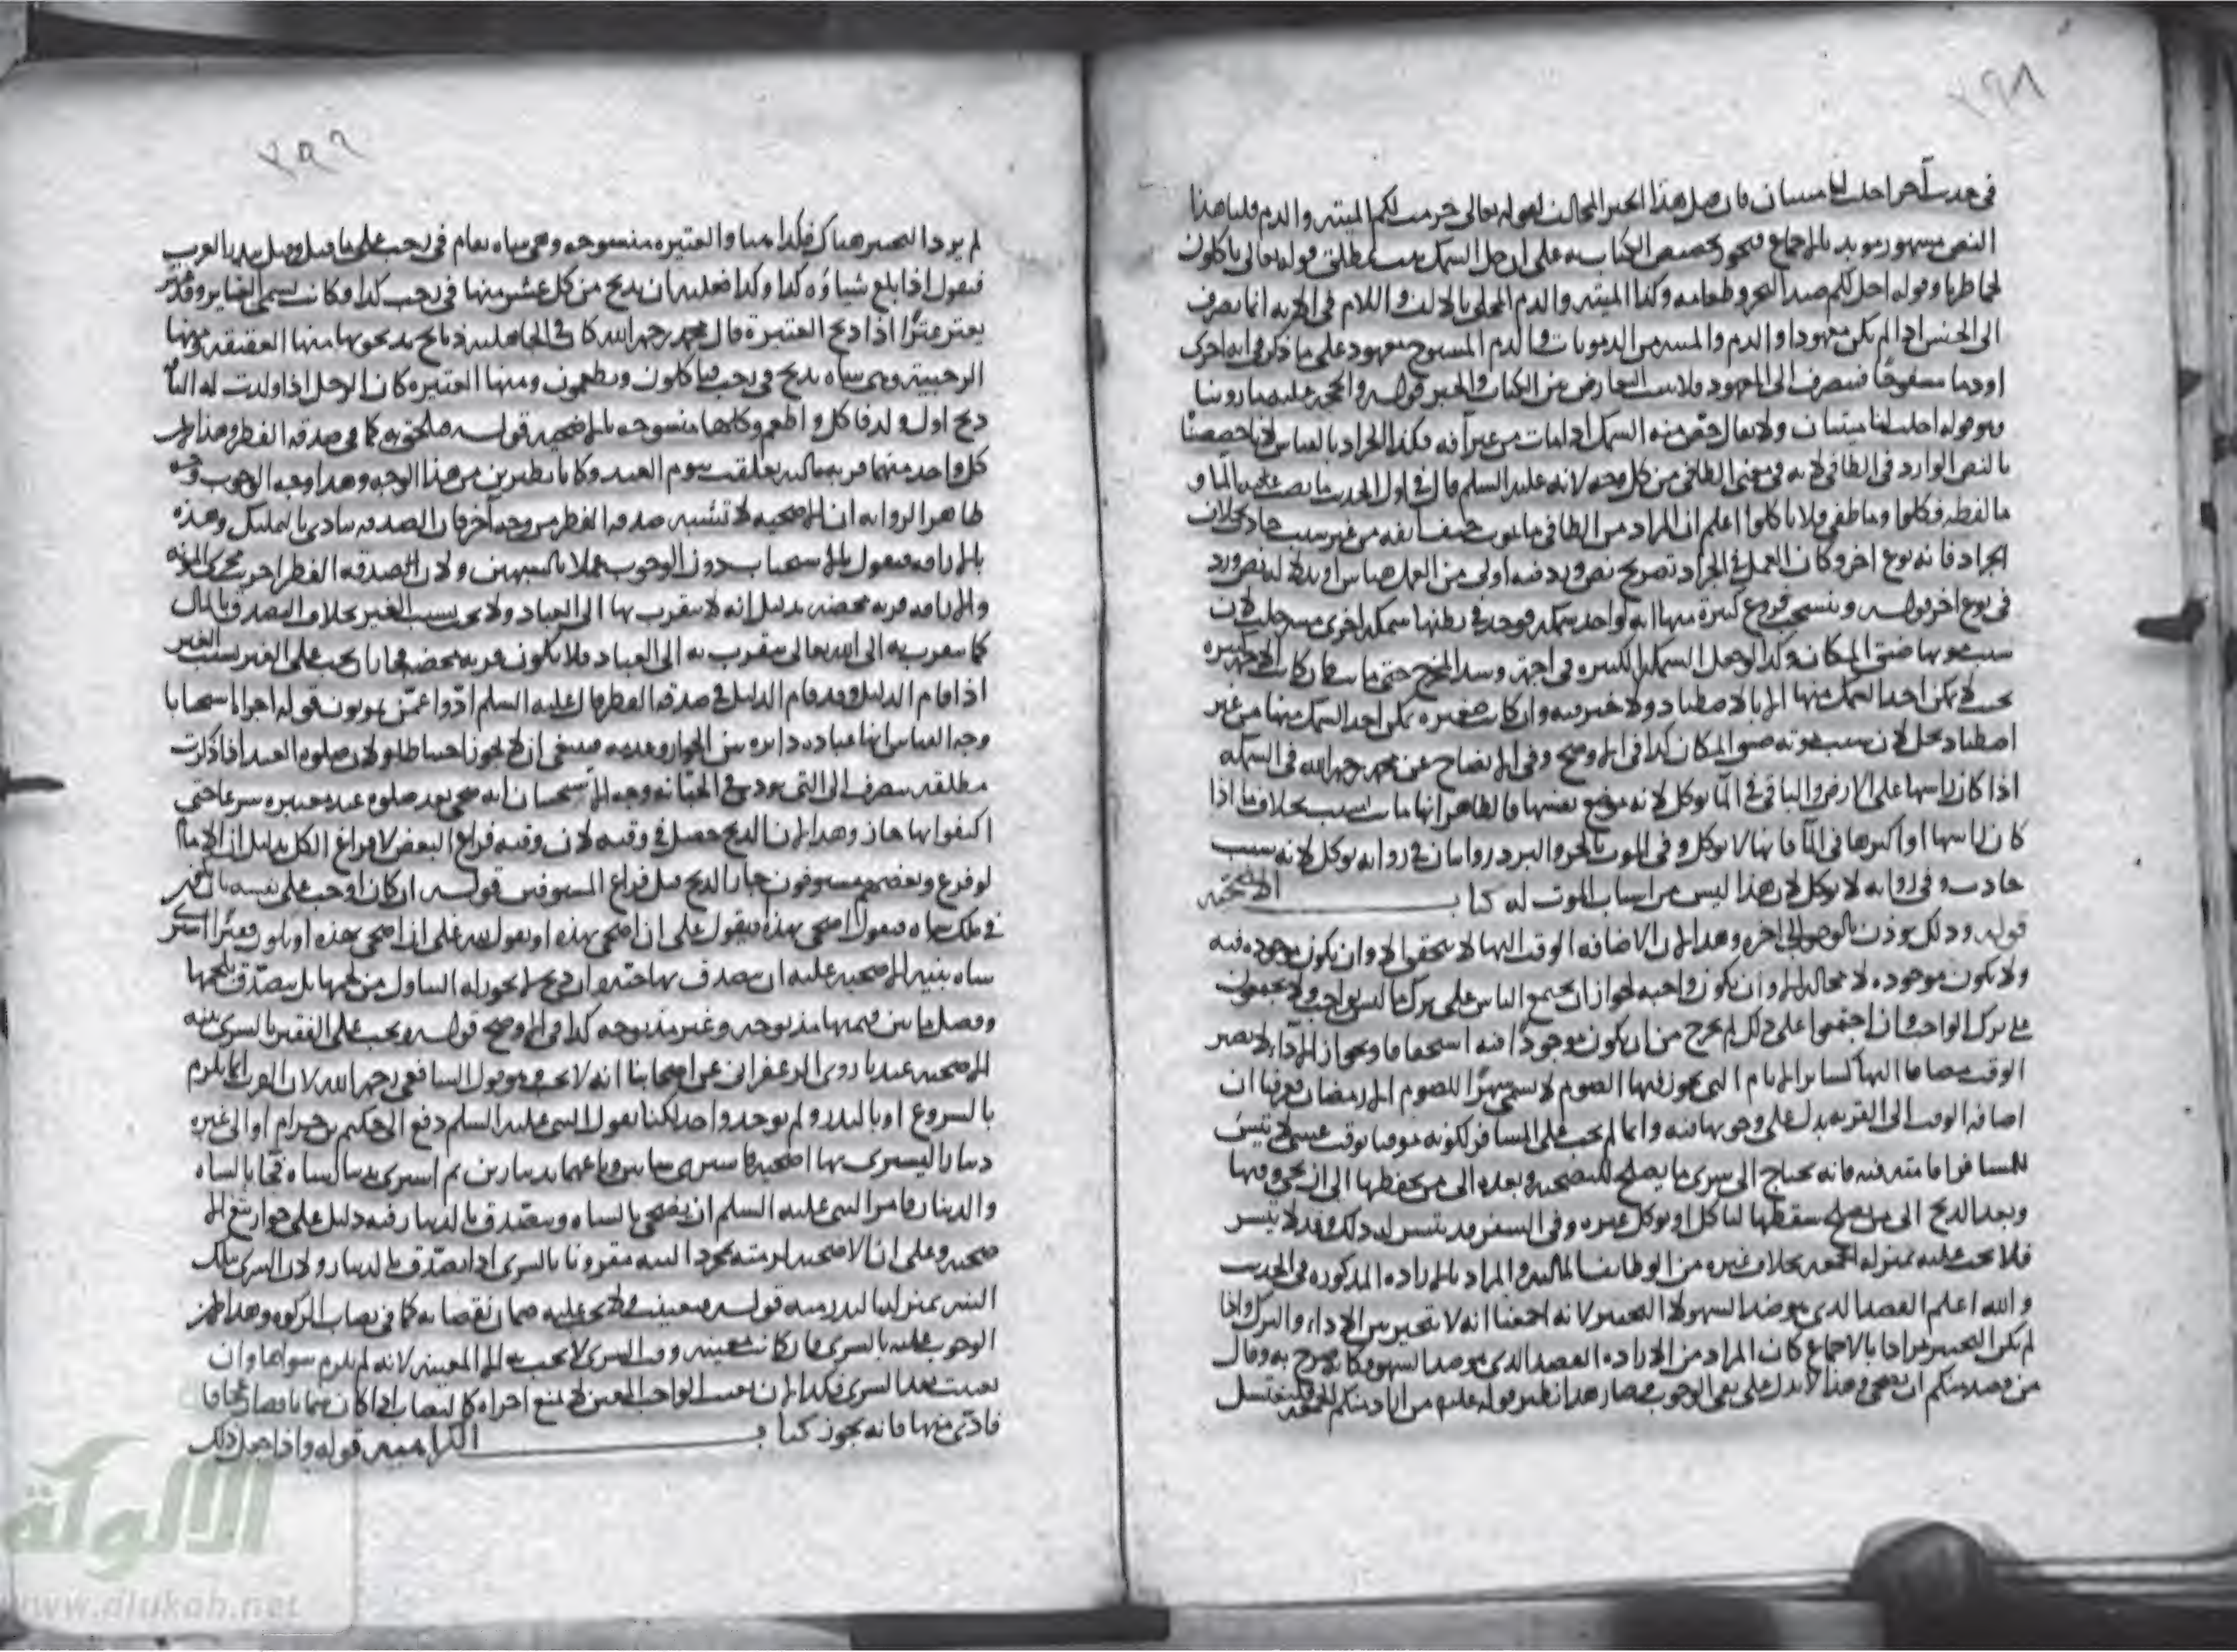 ٢٩٨
في حديث آخر احلت لنا ميتتان فان قيل هذا الخبر المخالف لقوله تعالى حرمت عليكم الميته والدم قلنا هذا
النص مشهور مويد بالاجماع فيجوز تخصيص الكتاب به على ان حل السمك ثبت بمطلق قوله تعالى تاكلون
لحما طريا وقوله احل لكم صيد البحر وطعامه وكذا الميته والدم المحلى بالالف واللام في الايه انما يصرف
الى الجنس اذا لم يكن معهودا والدم والميته من الدمويات والدم المسفوح معهود على ما ذكر في ايه اخرى
او دما مسفوحا فينصرف الى المعهود فلا يثبت التعارض بين الكتاب والخبر قوله والحجه عليه ما روينا
وهو قوله احلت لنا ميتتان ولا يقال خص منه السمك اذا مات من غير آفه فكذا الجراد بالقياس لانا خصصنا
بالنص الوارد في الطافي لا به في معنى الطافي من كل وجه لانه عليه السلم قال في اول الحديث ما نضب عنه الما و
ما لفظه فكلوا وما طفى فلا تاكلوا اعلم ان المراد من الطافي ما يموت حتف انفه من غير سبب حادث بخلاف
الجراد فانه نوع اخر وكان العمل في الجراد بصريح نص ورد فيه اولى من العمل بقياس او بدلاله نص ورد
في نوع اخر قوله وينسحب فروع كثيره منها انه لو اخذ سمكه فوجد في بطنها سمكه اخرى حلت لان
سبب موتها ضيق المكان وكذا لو جعل السمك الكثيره في اجمه وسد المخرج حتى مات فان كانت الاجمه كبيره
بحيث لا يمكن اخذ السمك منها الا بالاصطياد فلا خير فيه وان كانت صغيره يمكن اخذ السمك منها من غير
اصطياد يحل لان سبب موته ضيق المكان كذا في الاوضح وفي الايضاح عن محمد رحمه الله في السمكه
اذا كان راسها على الارض والباقي في الما توكل لانه موضع نفسها فالظاهر انها ماتت بسبب بخلاف ما اذا
كان راسها او اكثرها في الما فانها لا توكل وفي الموت بالحر والبرد روايتان في روايه توكل لانه سبب
حادث وفي روايه لا توكل لان هذا ليس من اسباب الموت له كتاب الاضحيه
قوله وذلك يوذن بالوجوب الى اخره وهذا لان الاضافه الوقت اليها لا يتحقق الا وان يكون موجوده فيه
ولا يكون موجوده لا محاله الا وان يكون واجبه لجواز ان يجتمع الناس على ترك ما ليس بواجب ولا يجتمعون
على ترك الواجب وان اجتمعوا على ذلك لم يخرج من ان يكون موجودا فيه استحقاقا وبجواز الاداء لا يصير
الوقت مضافا اليها كساير الايام التي يجوز فيها الصوم لا يسمى شهرا للصوم الا رمضان فعرفنا ان
اضافه الوقت الى القربه يدل على وجوبها فيه وانما لم يجب على المسافر لكونه موقتا بوقت عسى لا يتيسر
للمسافر اقامته فيه فانه يحتاج الى شرى ما يصلح للتضحيه وبعده الى من يحفظها الى ان يجي وقتها
وبعد الذبح الى من يصلح سقطها لياكل او يوكل غيره وفي السفر قد يتيسر له ذلك وقد لا يتيسر
فلا تجب عليه بمنزله الجمعه بخلاف غيره من الوظايف الماليه والمراد بالاراده المذكوره في الحديث
والله اعلم القصد الذي هو ضد السهو لا التخيير لانه اجمعنا انه لا تخيير بين الاداء والترك واذا
لم يكن التخيير مرادا بالاجماع كان المراد من الاراده القصد الذي هو ضد السهو وكانه صرح به وقال
من قصد منكم ان يضحي وهذا لا يدل على نفي الوجوب فصار هذا نظير قوله عليه من اراد منكم الجمعه فليغتسل
٢٩٩
لم يرد التخيير هناك فكذا هنا والعتيره منسوخه وهي شاه تقام في رجب على ما قيل وقيل نذر بالعرب
فيقول اذا بلغ شياؤه كذا وكذا فعليه ان يذبح من كل عشر منها في رجب كذا وكانت تسمى العتاير وقد عتر
يعتر عترا اذا ذبح العتيرة قال محمد رحمه الله كان في الجاهليه ذبايح يذبحونها منها العقيقه ومنها
الرجبية وهي شاه يذبح في رجب فياكلون ويطعمون ومنها العتيره كان الرجل اذا ولدت له الشاه
ذبح اول ولد فاكل واطعم وكلها منسوخه بالاضحيه قوله ملحق به كما في صدقه الفطر وهذا لان
كل واحد منهما قربه ماليه تعلقت بيوم العيد وكانا نظيرين من هذا الوجه وهذا وجه الوجوب وجه
ظاهر الروايه ان الاضحيه لا تشبه صدقه الفطر من وجه آخر فان الصدقه تتادى بالتمليك وهذه
بالاراقه فيقول بالاستحباب دون الوجوب عملا بالشبهين ولان الصدقه الفطر اجريت مجرى المونه
والاراقه قربه محضه بدليل انه لا يتقرب بها الى العباد ولا يجب بسبب الغير بخلاف التصدق بالمال
كما يتقرب به الى الله تعالى يتقرب به الى العباد فلا تكون قربه محضه فجاز ان يجب على الغير بسبب الغير
اذا قام الدليل وقد قام الدليل في صدقه الفطر قال عليه السلم ادوا عمن تمونون قوله اجزاه استحسانا
وجه القياس انها عباده دايره بين الجواز وعدمه فينبغي ان لا يجوز احتياطا ولان صلوه العيد اذا ذكرت
مطلقه ينصرف الى التي تودى في الجبانه وجه الاستحسان انه ضحى بعد صلوه عيد معتبره شرعا حتى
اكتفوا بها جاز وهذا لان الذبح حصل في وقته لان وقته فراغ البعض لا فراغ الكل بدليل ان الامام
لو فرغ وبعضهم مسبوقون جاز الذبح قبل فراغ المسبوقين قوله ان كان اوجب على نفسه بان عين
في ملكه شاه فيقول اضحي بهذه فيقول علي ان اضحي بهذه او يقول لله علي ان اضحي بهذه او يكون فقيرا اشترى
شاه بنيه الاضحيه عليه ان يتصدق بها حيه وان ذبح لا يجوز له التناول من لحمها بل يتصدق بلحمها
وفضل ما بين قيمتها مذبوحه وغير مذبوحه كذا في الاوضح قوله ويجب على الفقير بالشرى بنيه
الاضحيه عندنا روى الزعفراني عن اصحابنا انه لا يجب وهو قول الشافعي رحمه الله لان القرب انما يلزم
بالشروع او بالنذر ولم يوجد واحد لكنا نقول النبي عليه السلم دفع الى حكيم بن حزام او الى غيره
دينارا ليشتري بها اضحيه فاشترى شاتين وباعهما بدينارين ثم اشترى بدينار شاه فجا بالشاه
والدينار فامر النبي عليه السلم ان يضحي بالشاه ويتصدق بالدينار فيه دليل على جواز بيع الا
ضحيه وعلى ان الاضحيه لزمته بمجرد النيه مقرونا بالشرى اذا يتصدق بالدينار ولان الشرى بتلك
النيه بمنزله النذر منه قوله تعينت ولا يجب عليه ضمان نقصانه كما في نصاب الزكوه وهذا لان
الوجوب عليه بالشرى فان كانت معينه وقت الشرى لا يجب عليه الا المعينه لانه لم يلزم سواها وان
تعيبت بعد الشرى فكذا لان تعيب الواجب المعين لا يمنع اجزاه كالنصاب اذا كان سمانا فصار عجافا
فادى منها فانه يجوز كتاب الكراهيه قوله واذا حمل ذلك
الألوكة
www.alukah.net